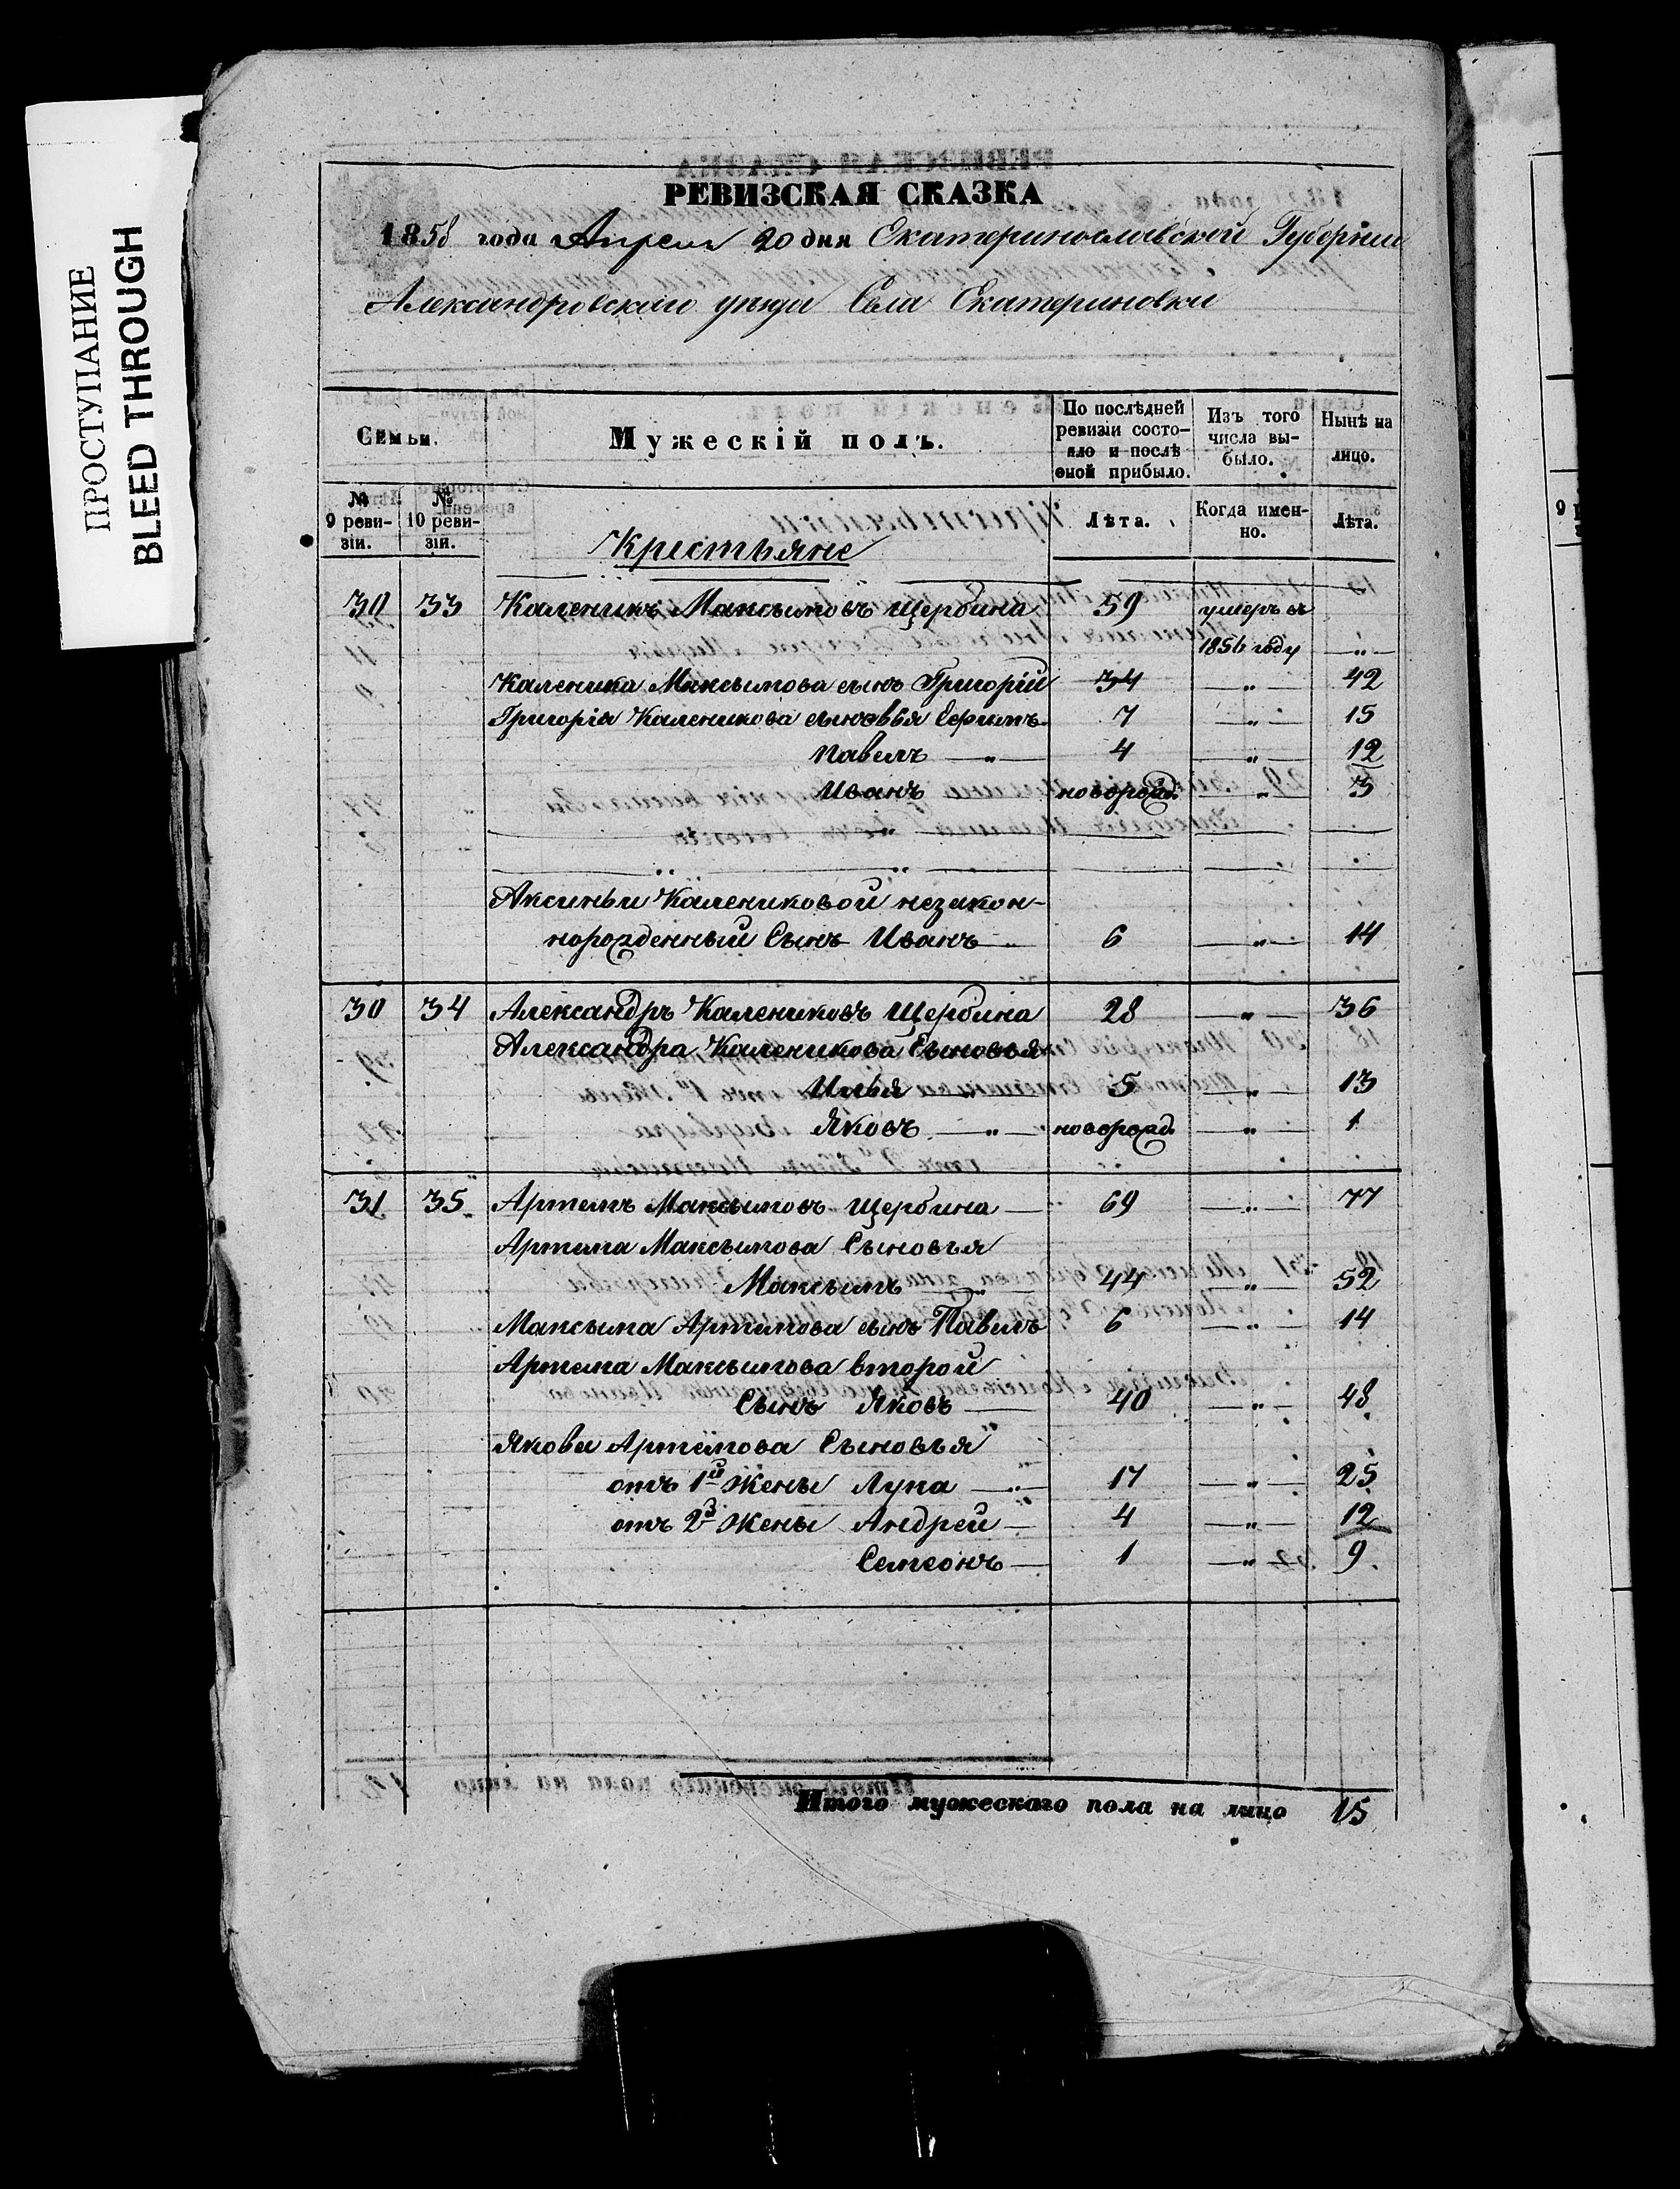 ПРОСТУПАНИЕ
BLEED THROUGH
РЕВИЗСКАЯ СКАЗКА
1858 года Апреля 20 дня Екатеринославской Губернии
Александровскаго уезда Села Екатериновки
Семьи.
Мужескій полъ.
По послѣдней ревизіи состояло и послѣ оной прибыло.
Изъ того числа выбыло.
Нынѣ на лицо.
№ 9 ревизіи.
№ 10 ревизіи.
Лѣта.
Когда именно.
Лѣта.
Крестьяне
30 33 Каленикъ Максымовъ Щербина 59 умеръ въ
1856 году —„—
Каленика Максымова сынъ Григорій 34 —„— 42
Григорія Каленикова сыновья Ефимъ 7 —„— 15
Павелъ —„— 4 —„— 12
Иванъ новорожд. —„— 3
Аксиньи Калениковой незакон-
норожденный Сынъ Иванъ 6 —„— 14
30 34 Александръ Калениковъ Щербина 28 —„— 36
Александра Каленикова Сыновья
Илья —„— 5 —„— 13
Яковъ —„— новорожд. —„— 1
31 35 Артемъ Максымовъ Щербина — 69 —„— 77
Артема Максымова Сыновья
Максымъ —„— 44 —„— 52
Максыма Артемова сынъ Павелъ 6 —„— 14
Артема Максымова второй
Сынъ Яковъ — 40 —„— 48
Якова Артемова Сыновья
отъ 1й Жены Лупа —„— 17 —„— 25
отъ 2й Жены Андрей — 4 —„— 12
Семеонъ — 1 —„— 9
Итого мужескаго пола на лицо 15